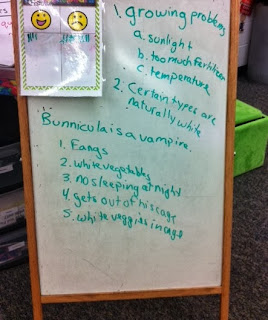 1. growing problems
a. sunlight
b. too much fertilizer
c. temperature
2. Certain types are
naturally white
Bunnicula is a vampire.
1. Fangs
2. white vegatables
3. no sleeping at night
4. gets out of his cage
5. white veggies in cage